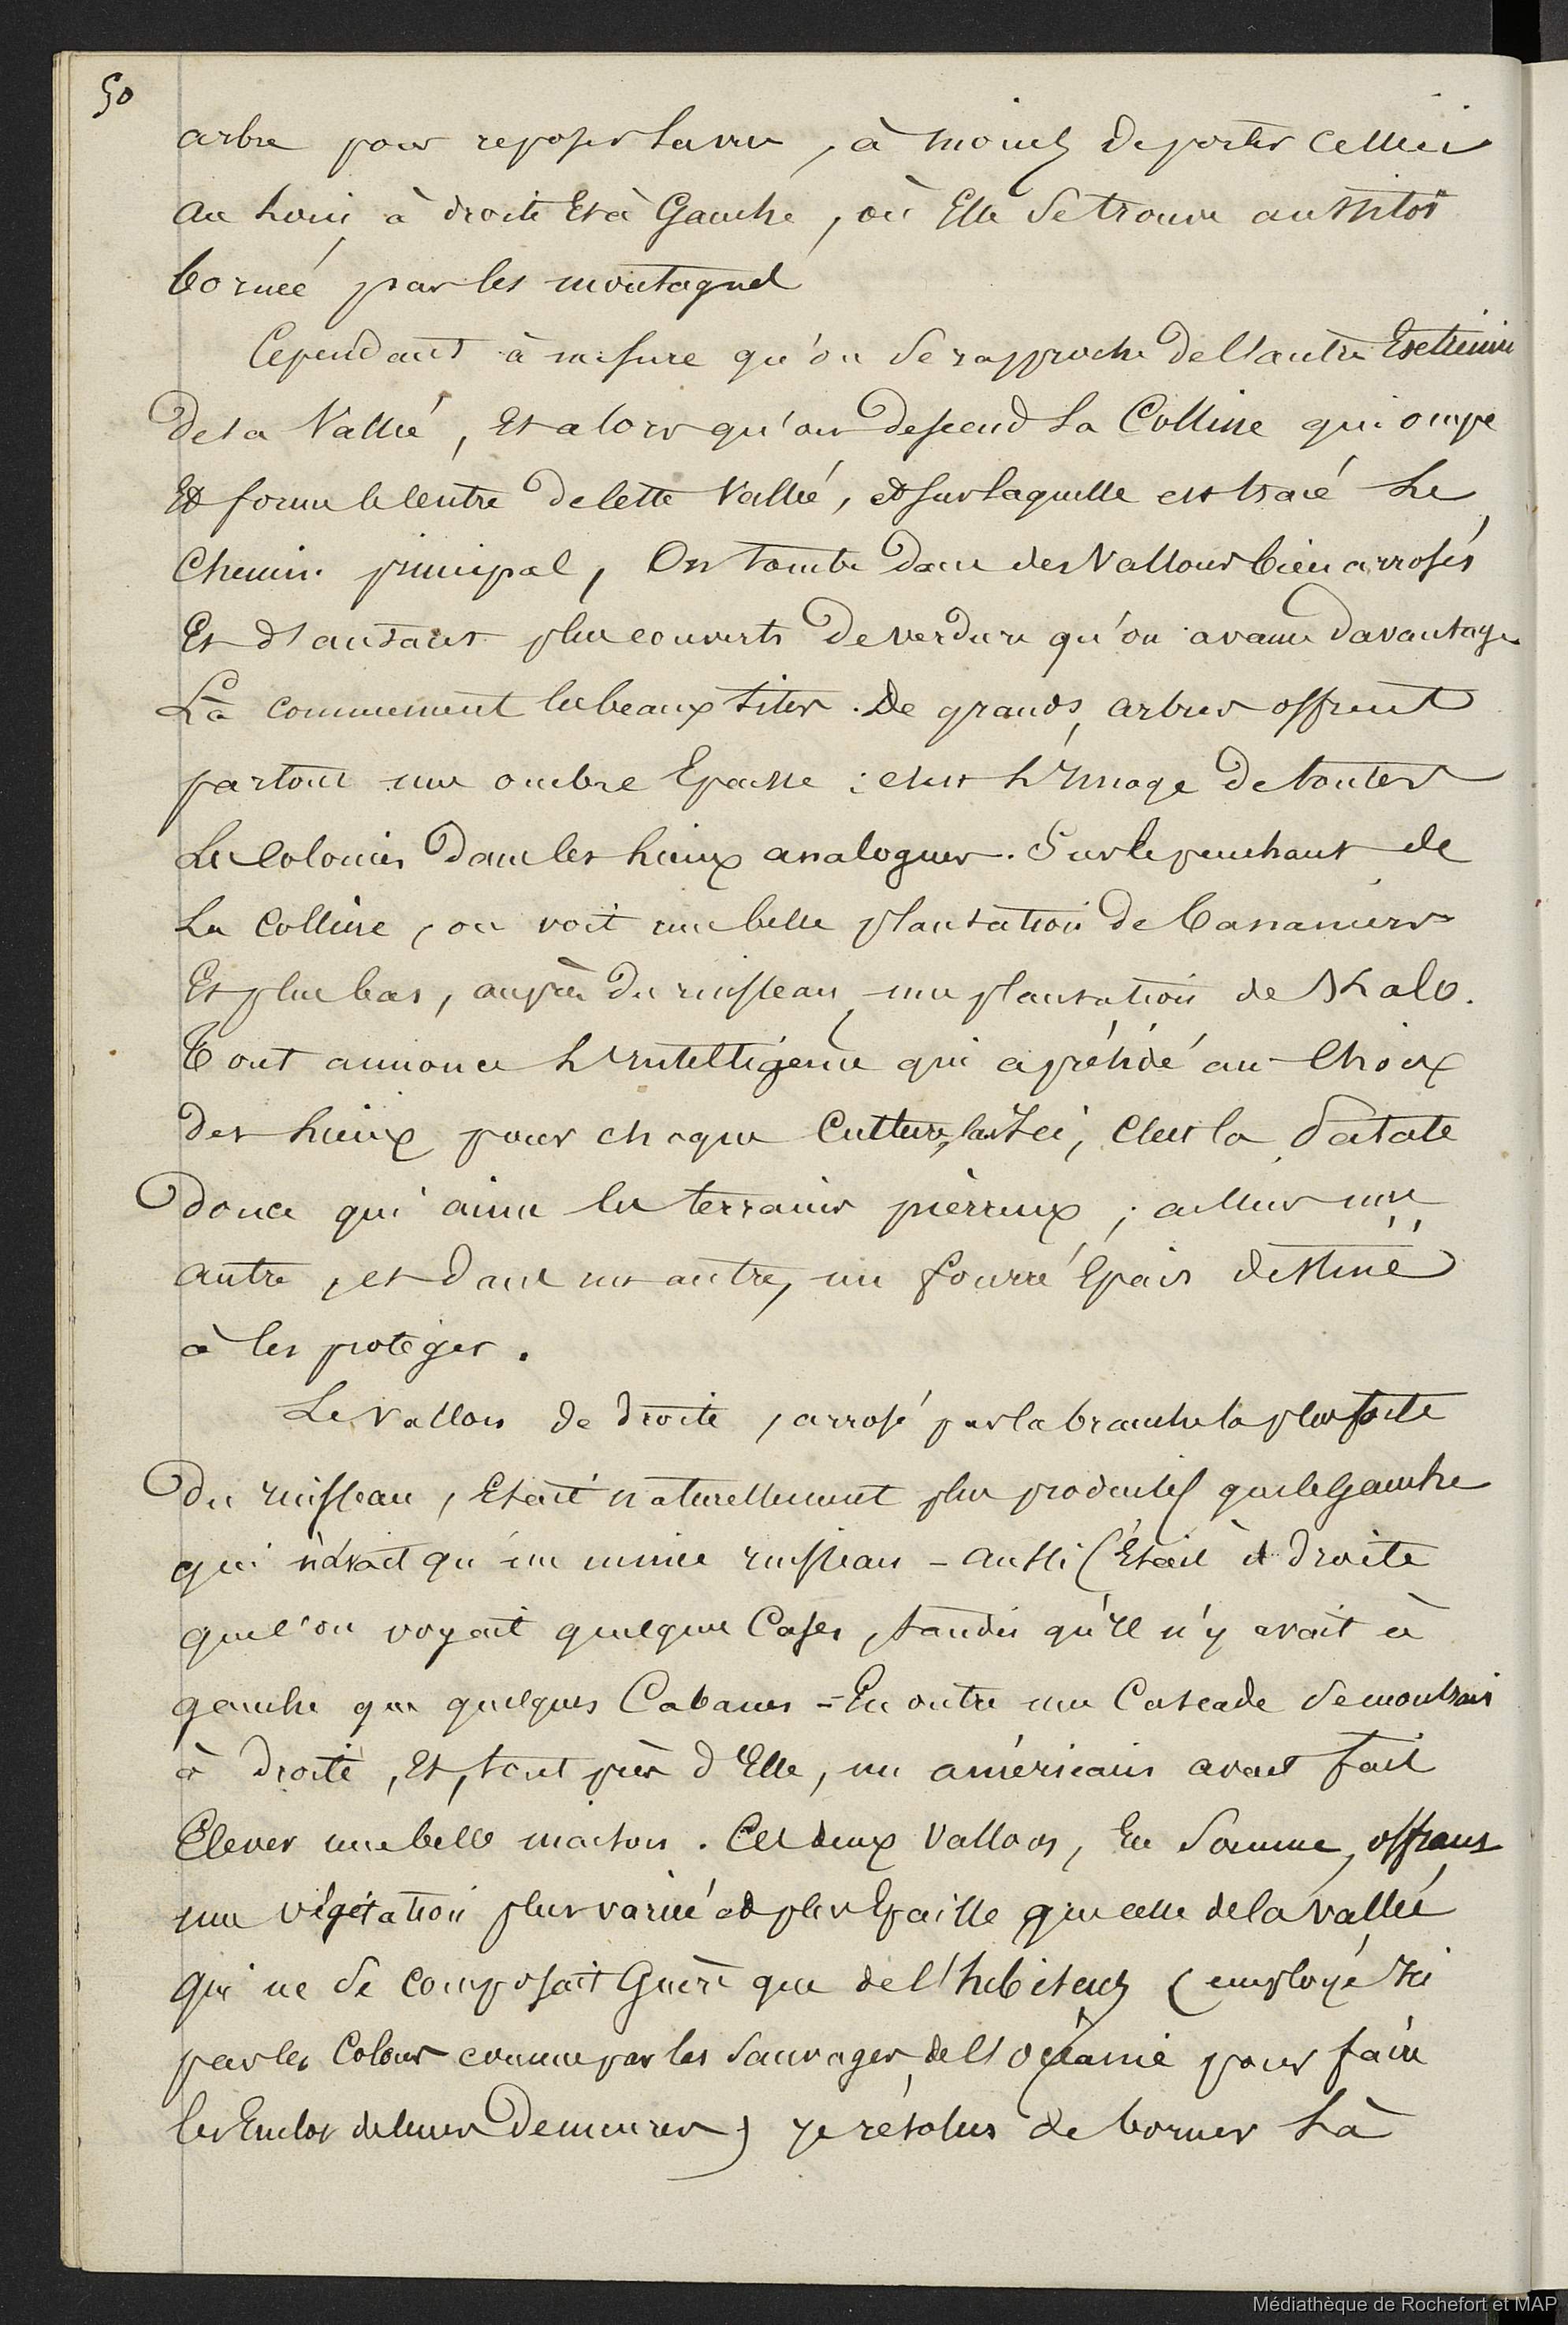 50
arbre pour reposer la vue, à moins de porter celleci
au loin à droite et à Gauche, où Elle se trouve aussitôt
bornée par les montagnes
Cependant à mesure qu'on se rapproche de l'autre Extrémité
de la Vallée, et alors qu'on descend la Colline qui occupe
Et forme le Centre de cette Vallée, et sur laquelle est tracé le
Chemin principal, On tombe dans des Vallons bien arrosés
Et d'autant plus couverts de verdure qu'on avance davantage
Là commencent les beaux sites. De grands arbres offrent
partout une ombre Epaisse ; c'est l'Image de toutes
Les Colonies dans les lieux analogues. Sur le penchant de
la Colline, on voit une belle plantation de bananiers
Et plus bas, auprès du ruisseau, une plantation de thalo.
Tout annonce l'Intelligence qui a présidé au Choix
des lieux pour chaque Culture, Ici, C'est la Patate
douce qui aime les terrains pierreux ; ailleurs une
autre, et dans un autre, un fourré Epais destiné
à les protéger.
Le Vallon de droite, arrosé par la branche la plus forte
du ruisseau, Etait naturellement plus productif que le Gauche
qui n'avait qu'un mince ruisseau - aussi C'Etait à droite
que l'on voyait quelques Cases, tandis qu'Il n'y avait à
gauche que quelques Cabanes - En outre une Cascade se montrait
à droite, Et, tout près d'Elle, un américain avait fait
Elever une belle maison. Ces deux Vallons, En Somme, offrent
une végétation plus variée et plus Epaisse que celle de la vallée
qui ne se composait Guère que de l'hibiscus (employé Ici
par les Colons comme par les Sauvages de l'océanie pour faire
les Enclos de leurs Demeures) je résolus de borner là
Médiathèque de Rochefort et MAP